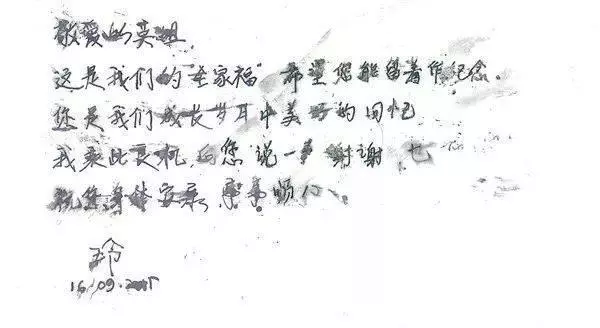 敬爱的英姐
这是我们的"全家福"希望您能留着作纪念。
您是我们成长岁月中美好的回忆
我乘此良机,向您说一声谢谢 也
祝您身体安康,事事顺心
玲
16.09.2015